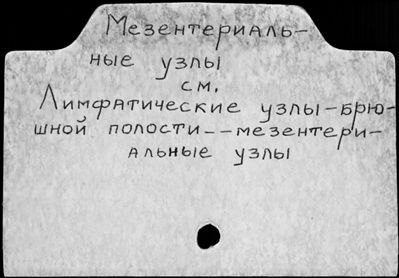 Мезентериаль-
ные узлы
см.
Лимфатические узлы-брю-
шной полости--мезентери-
альные узлы